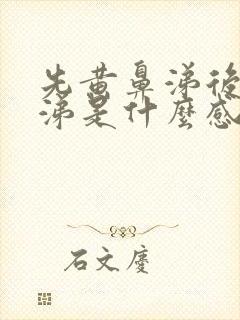 先黄鼻涕後
涕是什麼感
石文慶